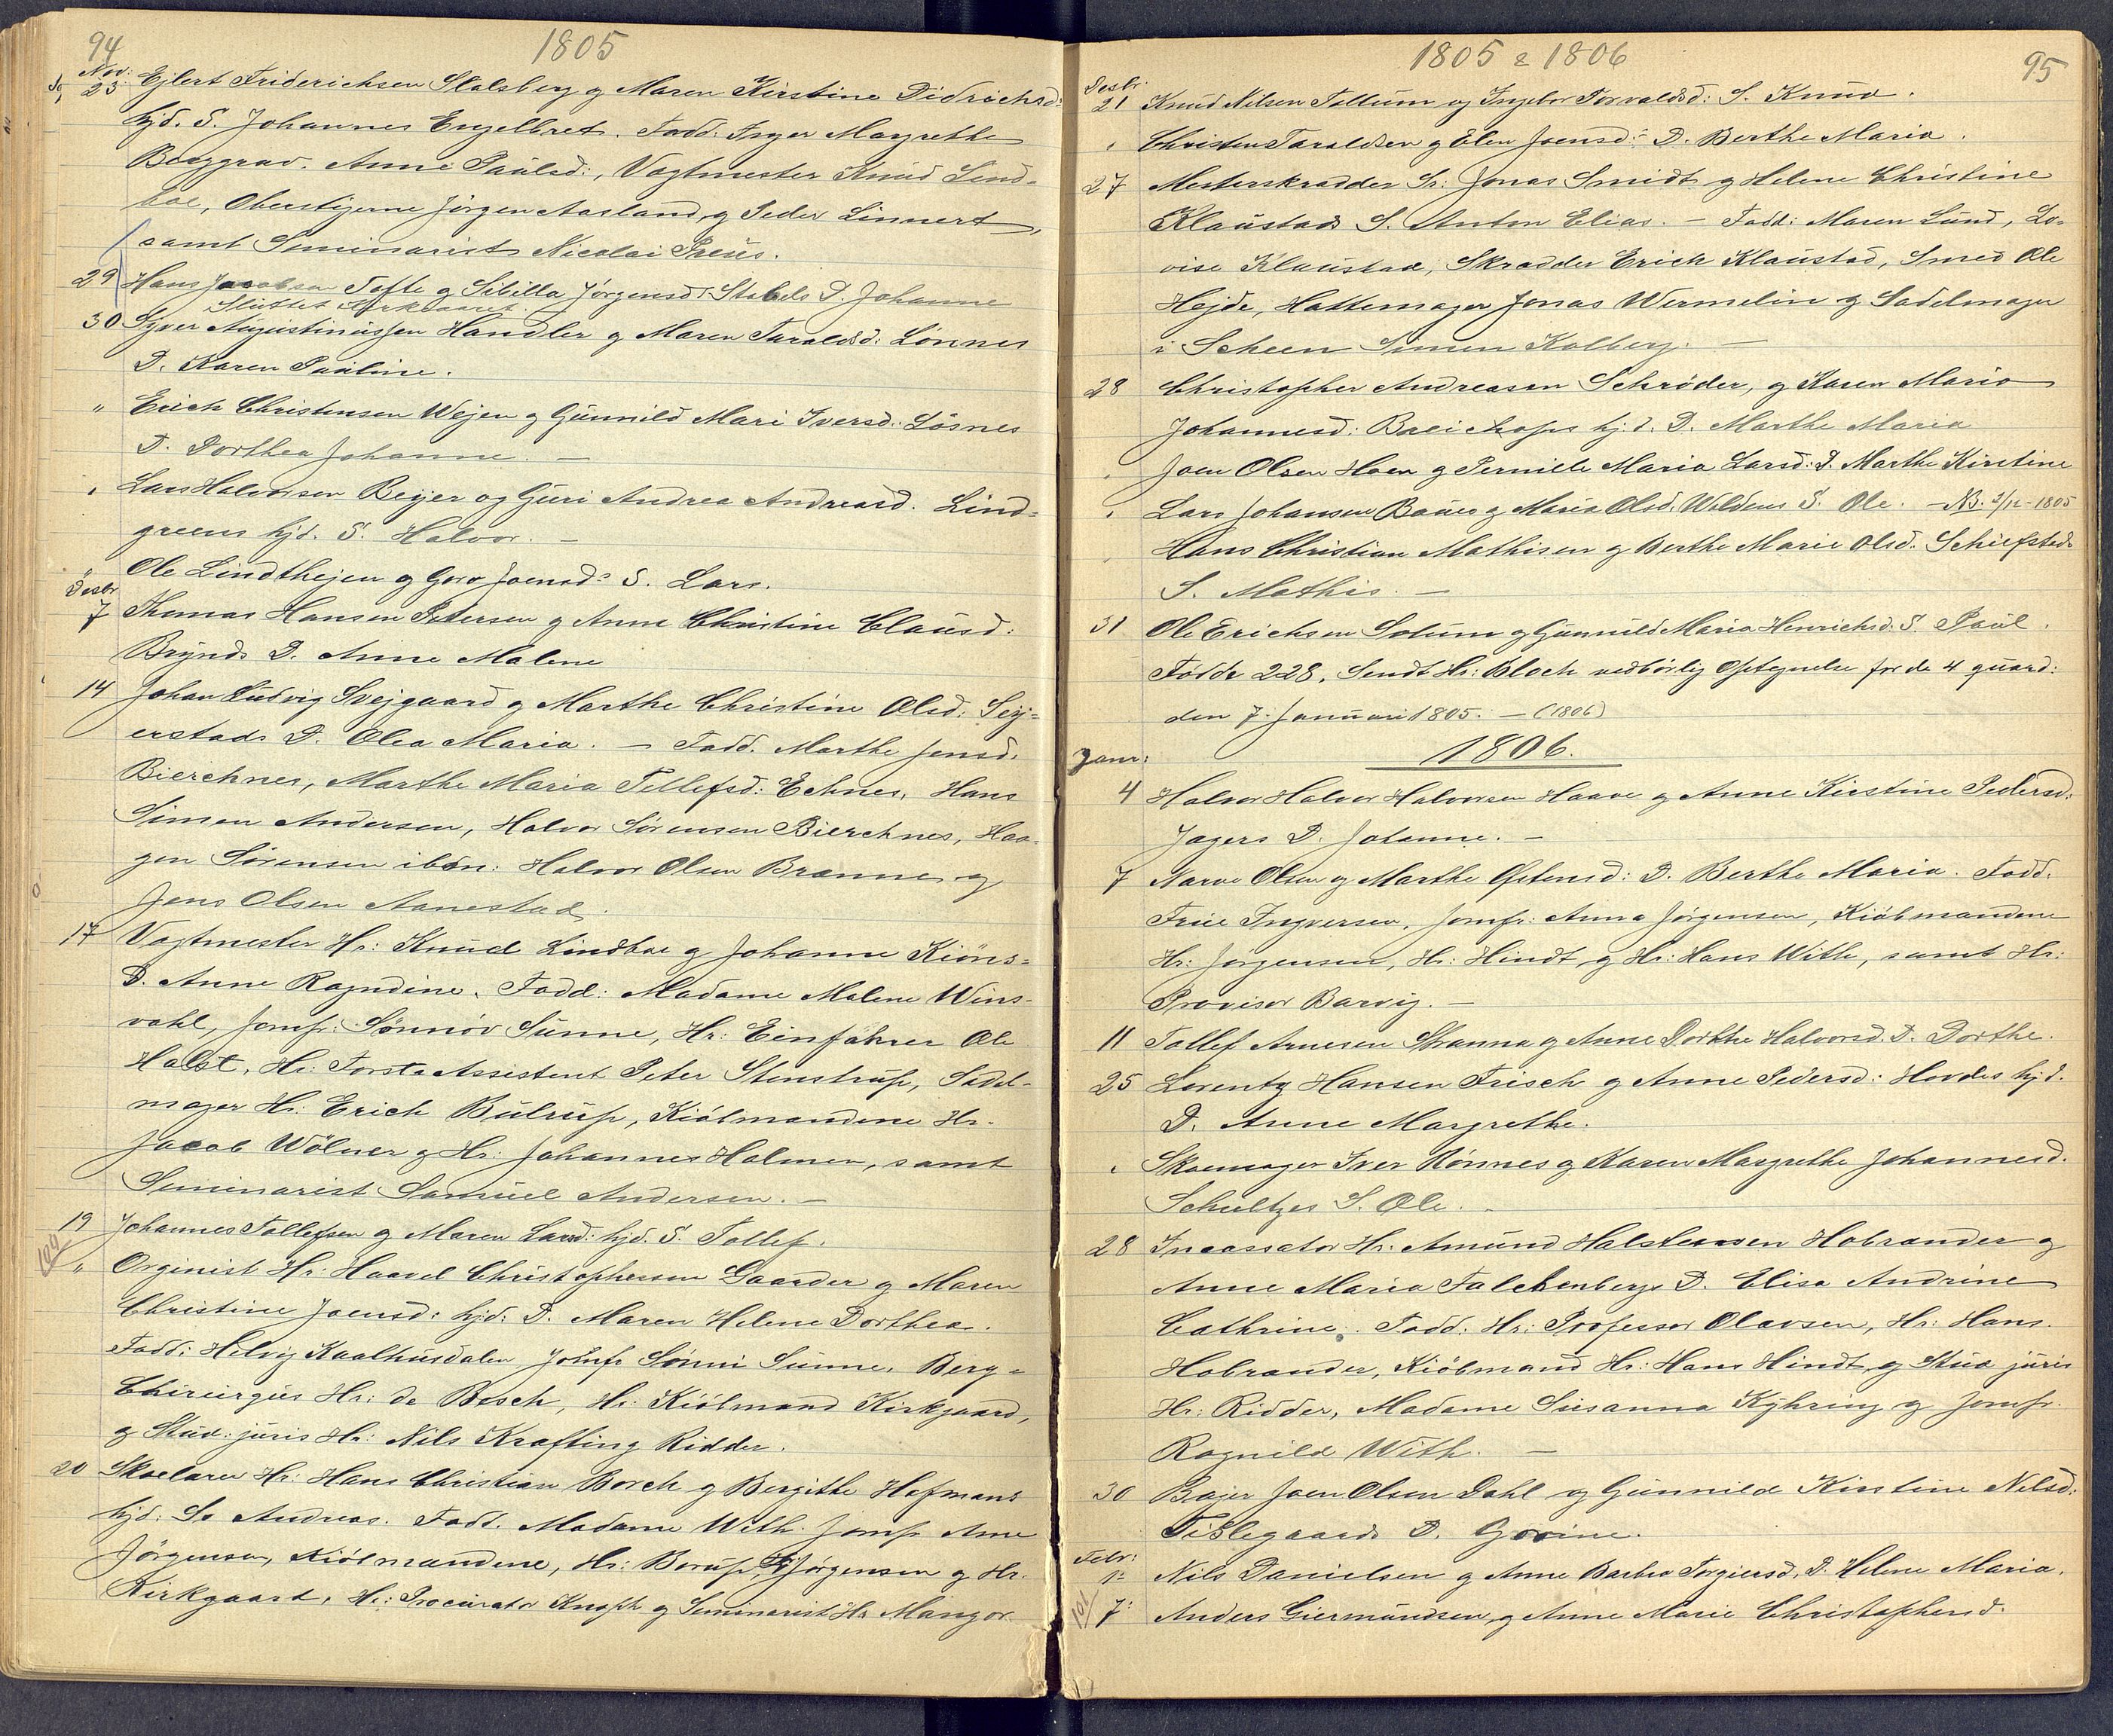 94
1805
Nov:
23 Ejlert Friderichsen Stalsberg og Maren Kirstine Didrichsd:
hjd. S. Johannes Engelbret. Fadd: Inger Margrethe
Berggrav. Anne Paulsd:, Vagtmester Knud Lind-
boe, Oberstigerne Jörgen Aasland, og Peder Linnert,
samt Seminarist Nicolai Preus.
29 Hans Jacobsen Tofte og Sibilla Jörgensd: Stabels D. Johanne
Sluttet Kirkeaaret.
30 Syver Augustinussen Handler og Maren Taraldsd: Lönnes
D. Karen Pauline.
" Erich Christensen Wejen og Gunnild Mari Iversd. Lösnes
D. Dorthea Johanne. —
" Lars Halvorsen Bejer og Guri Andrea Andreasd. Lind-
greens hjd. S. Halvor. —
" Ole Lindthejen og Goro Joensd: S. Lars.
Desbr
7 Thomas Hansen Petersen og Anne Christine Clausd:
Brynds D. Anne Malene
14 Johan Ludvig Svejgaard og Marthe Christine Olsd: Sej-
erstads D. Olea Maria. — Fadd. Marthe Jensd.
Bierchnes, Marthe Maria Tellefsd: Echnes, Hans
Simen Andersen, Halvor Sörensen Bierchnes, Haa-
gen Sörensen ibdn: Halvor Olsen Brænne og
Jens Olsen Aanestad.
17 Vagtmester Hr: Knud Lindboe og Johanne Kiöns-
D. Anne Ragndine. Fadd: Madame Malene Wins-
vohl, Jomf: Sönnöv Sunne, Hr: Einfahrer Ole
Holst, Hr: Forst Assistent Peter Stenstrup, Sadel-
mager Hr: Erich Bulrup, Kiöbmandene Hr.
Jacob Wölner og Hr: Johannes Holmen, samt
Seminarist Samuel Andersen. —
19 Johannes Tollefsen og Maren Larsd: hjd. S. Tollef.
" Orginist Hr: Haavel Christophersen Gaarder og Maren
Christine Joensd: hjd: D. Maren Helene Dorthea.
Fadd: Helvig Kaalhusdalen Jomfr Sönni Sunne, Berg-
Chirurgus Hr: de Besch, Hr: Kiöbmand Kirkgaard,
og Stud: juris Hr: Nils Krafting Ridder.
20 Skoelærer Hr: Hans Christian Borch og Bergithe Hofmans
hjd: S. Andreas. Fadd. Madame With. Jomfr Ane
Jörgensen, Kiöbmændene, Hr: Borup, Hr Jörgensen og Hr.
Kirkgaard, Hr: Procurator Knoph og Seminarist Hr Mangor.
1805 & 1806
95
Desbr:
21 Knud Nilsen Tollum og Ingebor Torvaldsd: S. Knud.
" Christen Taraldsen og Elen Joensd: D. Berthe Maria.
27 Mesterskrædder Sr: Jonas Smidt og Helene Christine
Klaustads S. Anton Elias. — Fadd: Maren Lund, Lo-
vise Klaustad, Skrædder Erich Klaustad, Smed Ole
Hejde, Hattemager Jonas Wermelin og Sadelmager
i Scheen Simen Kolberg. —
28 Christopher Andreasen Schröder, og Karen Maria
Johannesd: Baeichops hjd. D. Marthe Maria
" Joen Olsen Hoen og Pernille Maria Larsd: D. Marthe Kirstine
" Lars Johansen Baues og Maria Olsd. Woldens S. Ole. — NB. 3/12 - 1805
" Hans Christian Mathisen og Berthe Marie Olsd. Schiefsteds
S. Mathis. —
31 Ole Erichsen Solum og Gunnild Maria Henrichsd. S. Paul.
Födde 228. Sendt Hr: Bloch vedbörlig Optegnelse for de 4 quard:
den 7. Januari 1805. — (1806)
1806.
Janr:
4 Halvor Halvor Halvorsen Haave og Anne Kirstine Pedersd:
Jægers D. Johanne. —
7 Narve Olsen og Marthe Ostensd: D. Berthe Maria. Fadd.
Frue Ingversen, Jomfr: Anna Jörgensen, Kiöbmandene
Hr: Jörgensen, Hr: Hindt, og Hr: Hans With, samt Hr:
Provisor Barvig. —
11 Tollef Arnesen Stranna og Anne Dorthe Halvorsd. D. Dorthe.
25 Lorentz Hansen Frisch og Anne Pedersd: Hovdes hjd.
D. Anne Margrethe.
" Skoemager Iver Rönnes og Karen Margrethe Johannesd.
Schultzes S. Ole. —
28 Incassator Hr: Amund Halstensen Hobrander og
Anne Maria Falchenbergs D. Elisa Andrine
Cathrine. Fadd: Hr: Professor Olavsen, Hr: Hans
Hobrander, Kiöbmand Hr: Hans Hindt og Stud juris
Hr: Ridder, Madame Susanna Kyhring og Jomfr.
Rognild With. —
30 Bejer Joen Olsen Dahl og Gunnild Kirstine Nilsd:
Tislegaards D. Gorine.
Febr:
1: Nils Danielsen og Anne Barbro Torgiersd. D. Helene Maria.
7: Anders Giermundsen, og Anne Marie Christophersd.